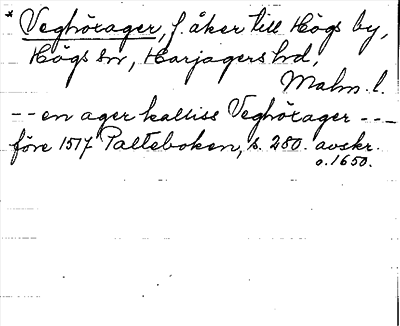 * Veghöxager, f. åker till Högs by,
Högs sn, Harjagers hd,
Malm. l.
-- en ager kalliss Veghöxager ---
före 1517 Palteboken, s. 280. avskr.
o. 1650.